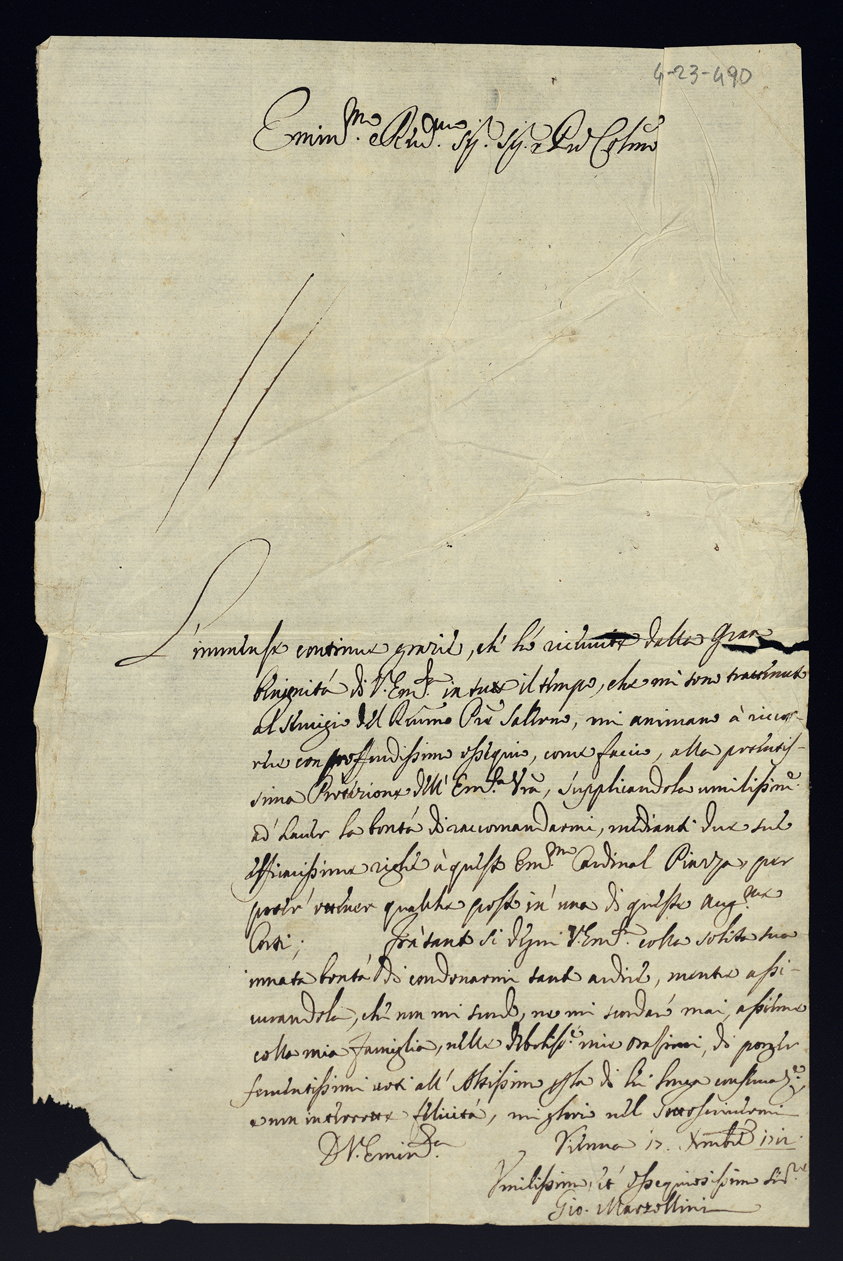 4-23-490
Emin.mo e Rev.mo Sig.r Sig.r e Pro Colmo
L'immense continue grazie, ch'hò ricevute dalla Gran
benignità di V. Em.za in tutto il tempo, che mi sono trattenuto
al servizio del Rev.mo Prē Salerno, mi animano à ricor-
rere con proffondissimo ossequio, come faccio, alla preciatis-
sima Protezione dell'Em.za Vrā, supplicandola umilissim.e
ad' haver la bontà di raccomandarmi, mediante due sue
efficacissime righe à questo Em.mo Cardinal Piazza, per
poter' ottener qualche posto in' una di queste Aug.me
Corti; Frà tanto si degni V. Em.za colla solita sua
innata bontà di condonarmi tanto ardire, mentre assi-
curandola, che non mi scordo, ne mi scordarò mai, assieme
colla mia famiglia, nelle debolis.e mie orazioni, di porger
ferventissimi voti all'Altissimo per la di lei longa conservaz.e,
e non interrotta felicità, mi glorio nel sottoscrivermi
D. V. Emin.za Vienna 17. Xmbre 1712.
Umilissimo, et' ossequiosissimo Ser.re
Gio. Mazzollini